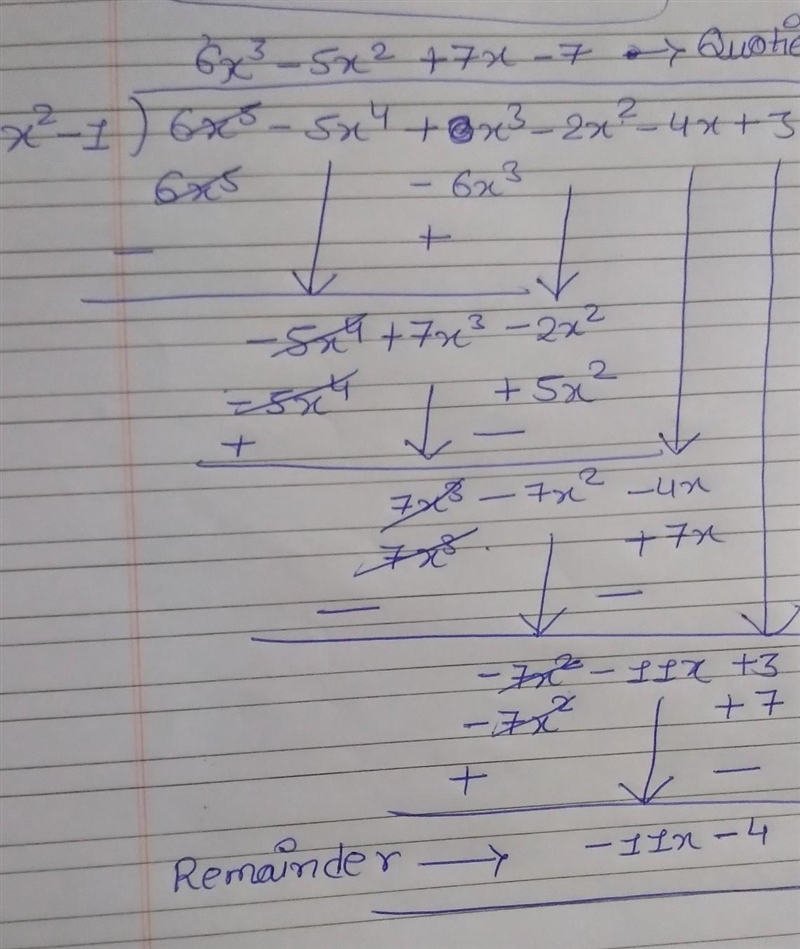 6x³ - 5x² + 7x - 7 → Quotie
x² - 1 ) 6x⁵ - 5x⁴ + x³ - 2x² - 4x + 3
6x⁵ - 6x³
- +
- 5x⁴ + 7x³ - 2x²
- 5x⁴ + 5x²
+ -
7x³ - 7x² - 4x
7x³ + 7x
- -
- 7x² - 11x + 3
- 7x² + 7
+ -
Remainder → - 11x - 4